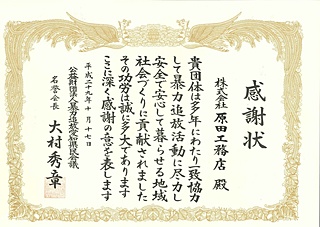 感謝状
株式会社 原田工務店 殿
貴団体は多年にわたり一致協力
して暴力追放活動に尽力し
安全で安心して暮らせる地域
社会づくりに貢献されました
その功労は誠に多大であります
ここに深く感謝の意を表します
平成二十九年十月十七日
公益財団法人暴力追放愛知県民会議
名誉会長 大村秀章